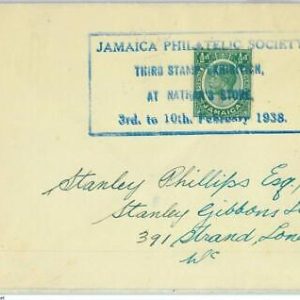 JAMAICA PHILATELIC SOCIETY
THIRD STAMP EXHIBITION,
AT NATHAN'S STORE,
3rd. to 10th. February 1938.
JAMAICA
Stanley Phillips Esq.
Stanley Gibbons L
391 Strand, Lon
WC